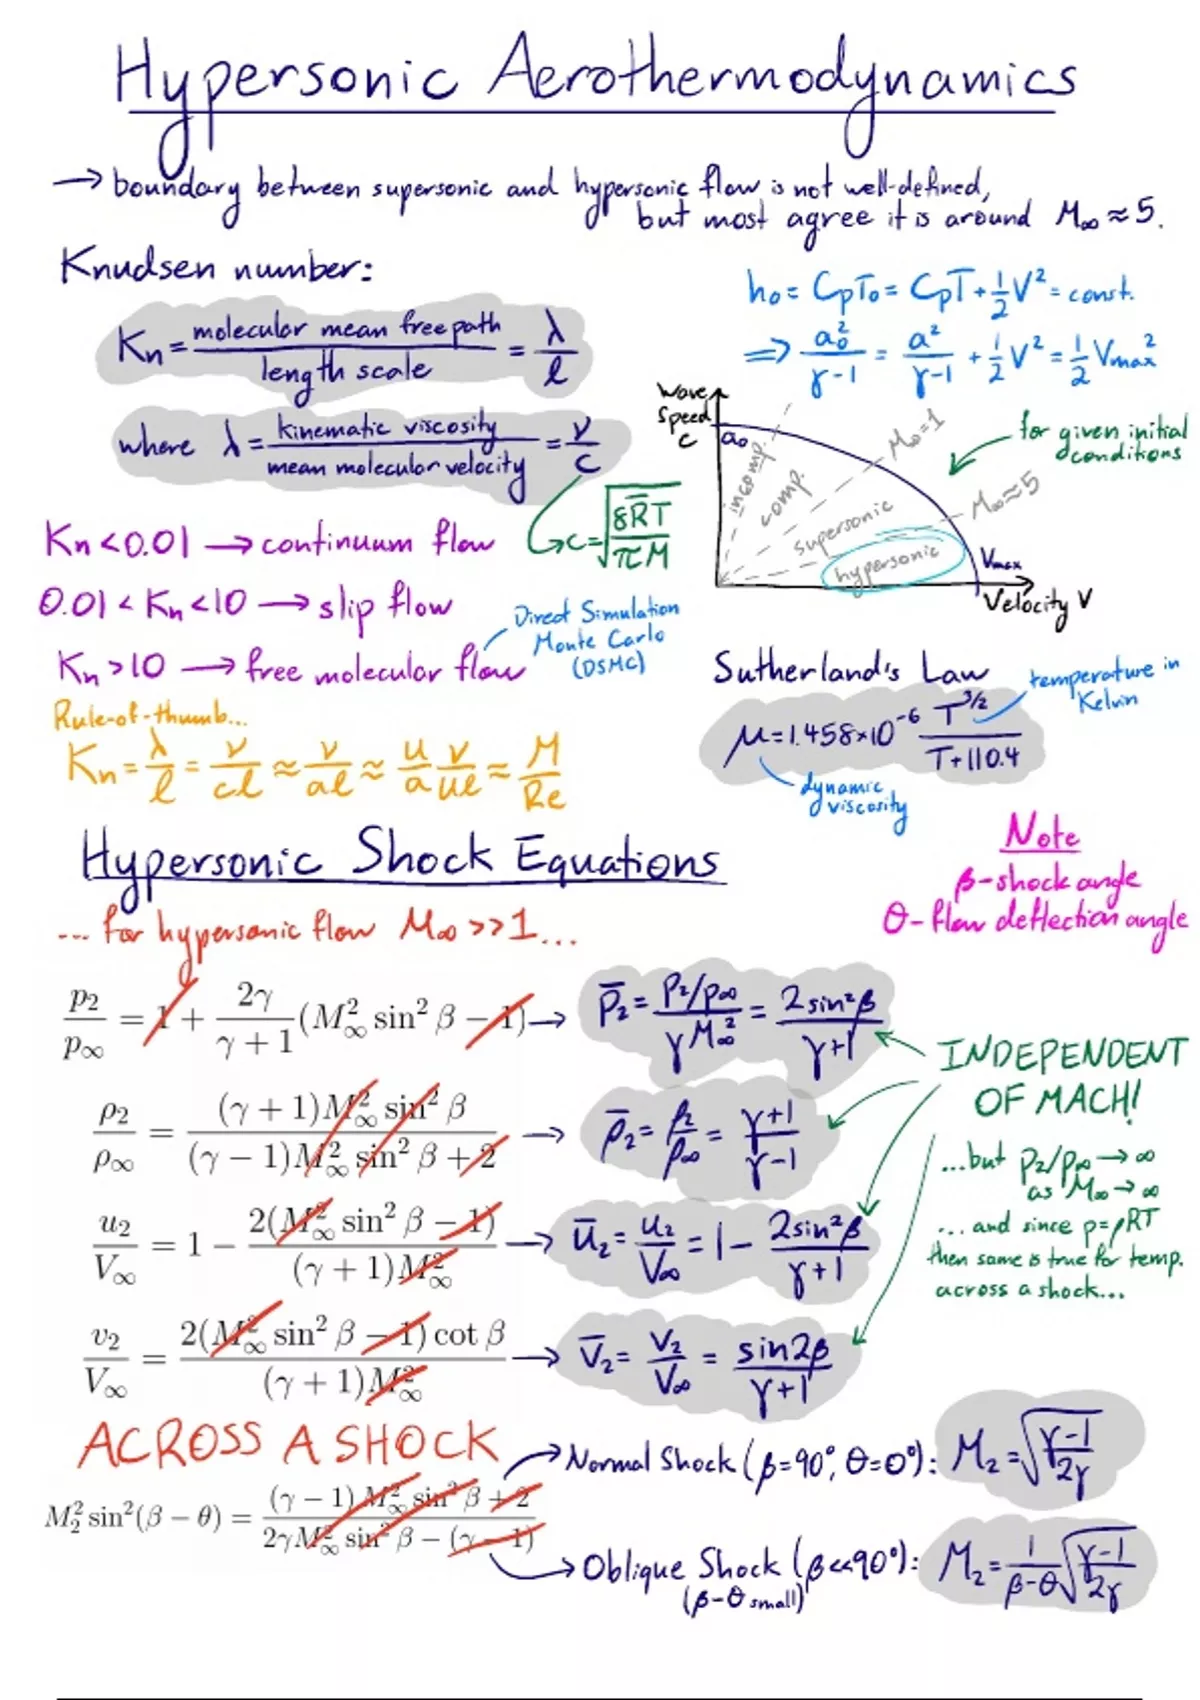 Hypersonic Aerothermodynamics
→ boundary between supersonic and hypersonic flow is not well-defined,
but most agree it is around M∞ ≈ 5.
Knudsen number:
Kn = molecular mean free path / length scale = λ / l
where λ = kinematic viscosity / mean molecular velocity = ν / c
c = √(8R̅T / πM)
Kn < 0.01 → continuum flow
0.01 < Kn < 10 → slip flow
Kn > 10 → free molecular flow
Direct Simulation
Monte Carlo
(DSMC)
Rule-of-thumb...
Kn = λ/l = ν/cl ≈ ν/al ≈ u/a ν/ul ≈ M/Re
h₀ = CpT₀ = CpT + 1/2 V² = const.
⇒ a₀²/γ-1 = a²/γ-1 + 1/2 V² = 1/2 Vmax²
Wave
Speed
c
a₀
incomp.
comp.
M∞=1
supersonic
M∞≈5
hypersonic
Vmax
Velocity V
for given initial
conditions
Sutherland's Law
μ = 1.458×10⁻⁶ T^3/2 / T+110.4
temperature in
Kelvin
dynamic
viscosity
Note
β-shock angle
θ-flow deflection angle
Hypersonic Shock Equations
... for hypersonic flow M∞ >> 1...
p₂/p∞ = 1 + 2γ/(γ+1) (M∞² sin² β − 1) → p̅₂ = p₂/p∞ / γM∞² = 2sin²β / γ+1
ρ₂/ρ∞ = (γ+1)M∞² sin² β / (γ−1)M∞² sin² β + 2 → ρ̅₂ = ρ₂/ρ∞ = γ+1 / γ-1
u₂/V∞ = 1 − 2(M∞² sin² β − 1) / (γ+1)M∞² → u̅₂ = u₂/V∞ = 1 - 2sin²β / γ+1
v₂/V∞ = 2(M∞² sin² β − 1) cot β / (γ+1)M∞² → v̅₂ = v₂/V∞ = sin2β / γ+1
INDEPENDENT
OF MACH!
...but p₂/p∞ → ∞
as M∞ → ∞
... and since p=ρRT
then same is true for temp.
across a shock...
ACROSS A SHOCK
M₂² sin²(β − θ) = (γ−1) M∞² sin² β + 2 / 2γM∞² sin² β − (γ−1)
→ Normal Shock (β=90°, θ=0°): M₂ = √(γ-1 / 2γ)
→ Oblique Shock (β<<90°): M₂ = 1/β-θ √(γ-1 / 2γ)
(β-θ small)